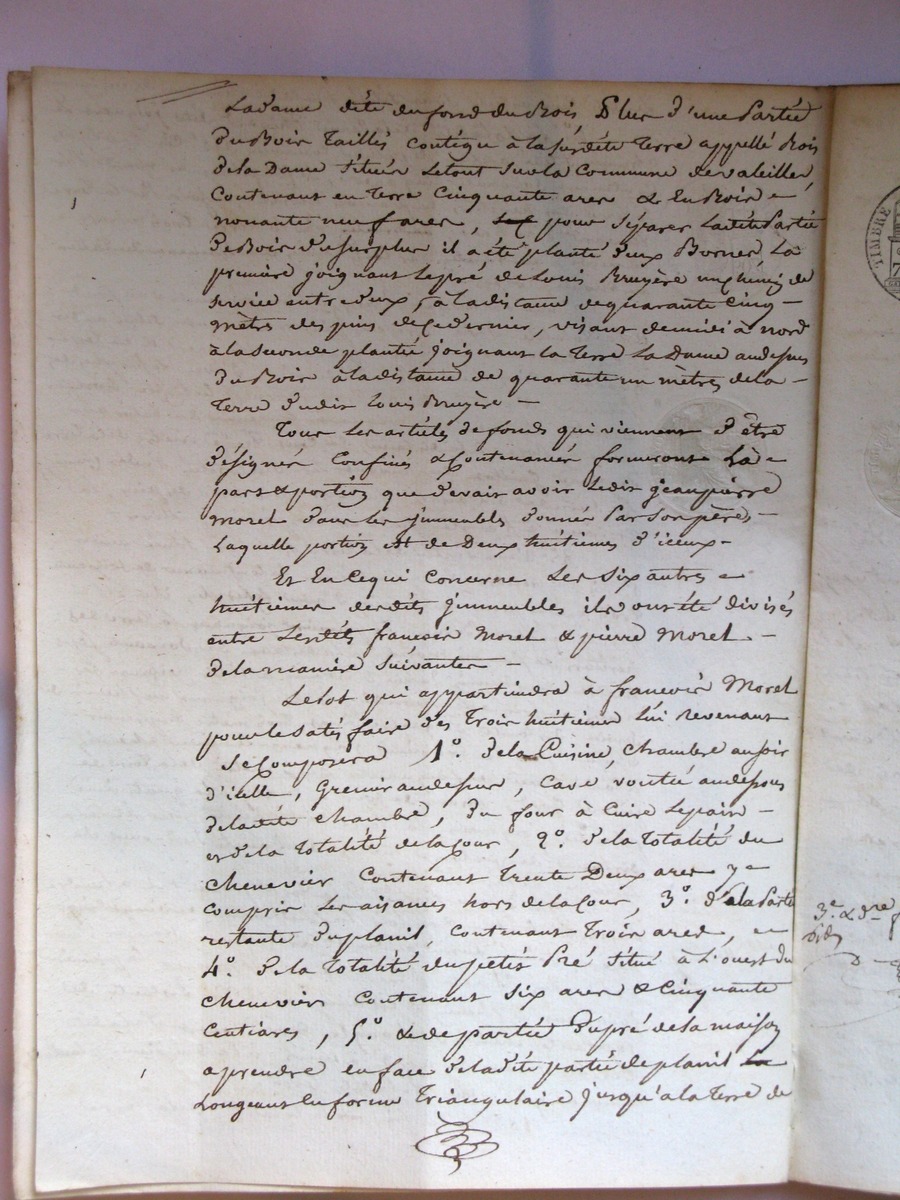 Ladame dite du fond du Bois Plus d'une Partie
du Bois Taillis contigu à la susdite Terre appellé Bois
de la Dame situés Letout sur la Commune de valeilles
Contenant en Terre Cinquante ares & En Bois =
nonante neuf ares, pour séparer Ladite Partie
de Bois du surplus il a été planté deux Bornes, La
première joignant Lepré de Louis Bruyère un chemin de
service entre deux, à la distance de quarante cinq -
mètres des pins de ce dernier, visant de midi à nord
à la seconde plantée joignant la Terre La Dame au dessus
du Bois à la distance de quarante un mètres de la -
Terre dudit Louis Bruyère -
Tous les articles de fonds qui viennent d'être
désignés Confinés & Contenancés formeront La =
part & portion que devait avoir Ledit jeanpierre
Morel dans les jmmeubles donnés Par son père, -
Laquelle portion est de Deux huitièmes d'iceux -
Et En Ce qui Concerne Les Six autres =
huitièmes desdits jmmeubles ils ont été divisés
entre Lesdits françois Morel & pierre Morel -
de la manière suivantes -
Le Lot qui appartiendra à françois Morel
pour le satisfaire des Trois huitièmes Lui Revenant
se Composera 1.º de la Cuisine, Chambre au soir
d'icelle, Grenier au dessus, Cave voutée au dessous
de ladite Chambre, du four à Cuire Lepain -
et de la Totalité de la Cour, 2.º de la Totalité du
Chenevier Contenant Trente Deux ares y =
compris Les aisances hors de la Cour, 3.º de la Partie
restante du planil, contenant Trois ares, =
4.º de la Totalité du petit Pré situé à L'ouest du
Chenevier Contenant Six ares & Cinquante
Centiares, 5.º & de partie du pré de la maison
a prendre en face de ladite partie de planil
Longeant En forme Triangulaire jusqu'a la Terre de
TIMBRE
3.e & dre